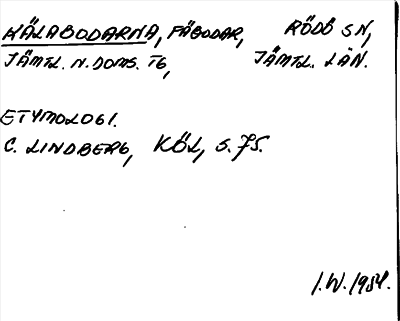 KÄLABODARNA, FÄBODAR, RÖDÖ SN,
JÄMTL. N. DOMS. TG, JÄMTL. LÄN.
ETYMOLOGI.
C. LINDBERG, KÖL, S. 75.
I.W. 1954.